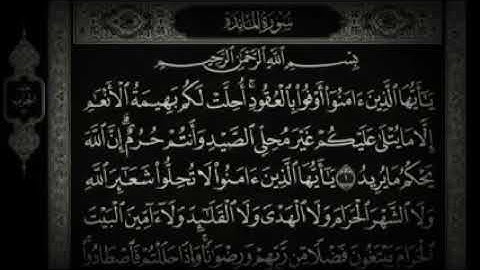 سُورَةُ المَائِدَة
بِسْمِ اللَّهِ الرَّحْمَٰنِ الرَّحِيمِ
يَٰٓأَيُّهَا الَّذِينَ ءَامَنُوٓا أَوْفُوا بِالْعُقُودِ ۚ أُحِلَّتْ لَكُم بَهِيمَةُ الْأَنْعَٰمِ
إِلَّا مَا يُتْلَىٰ عَلَيْكُمْ غَيْرَ مُحِلِّي الصَّيْدِ وَأَنتُمْ حُرُمٌ ۗ إِنَّ اللَّهَ
يَحْكُمُ مَا يُرِيدُ ١ يَٰٓأَيُّهَا الَّذِينَ ءَامَنُوا لَا تُحِلُّوا شَعَٰٓئِرَ اللَّهِ
وَلَا الشَّهْرَ الْحَرَامَ وَلَا الْهَدْيَ وَلَا الْقَلَٰٓئِدَ وَلَآ ءَآمِّينَ الْبَيْتَ
الْحَرَامَ يَبْتَغُونَ فَضْلًا مِّن رَّبِّهِمْ وَرِضْوَٰنًا ۚ وَإِذَا حَلَلْتُمْ فَاصْطَادُوا